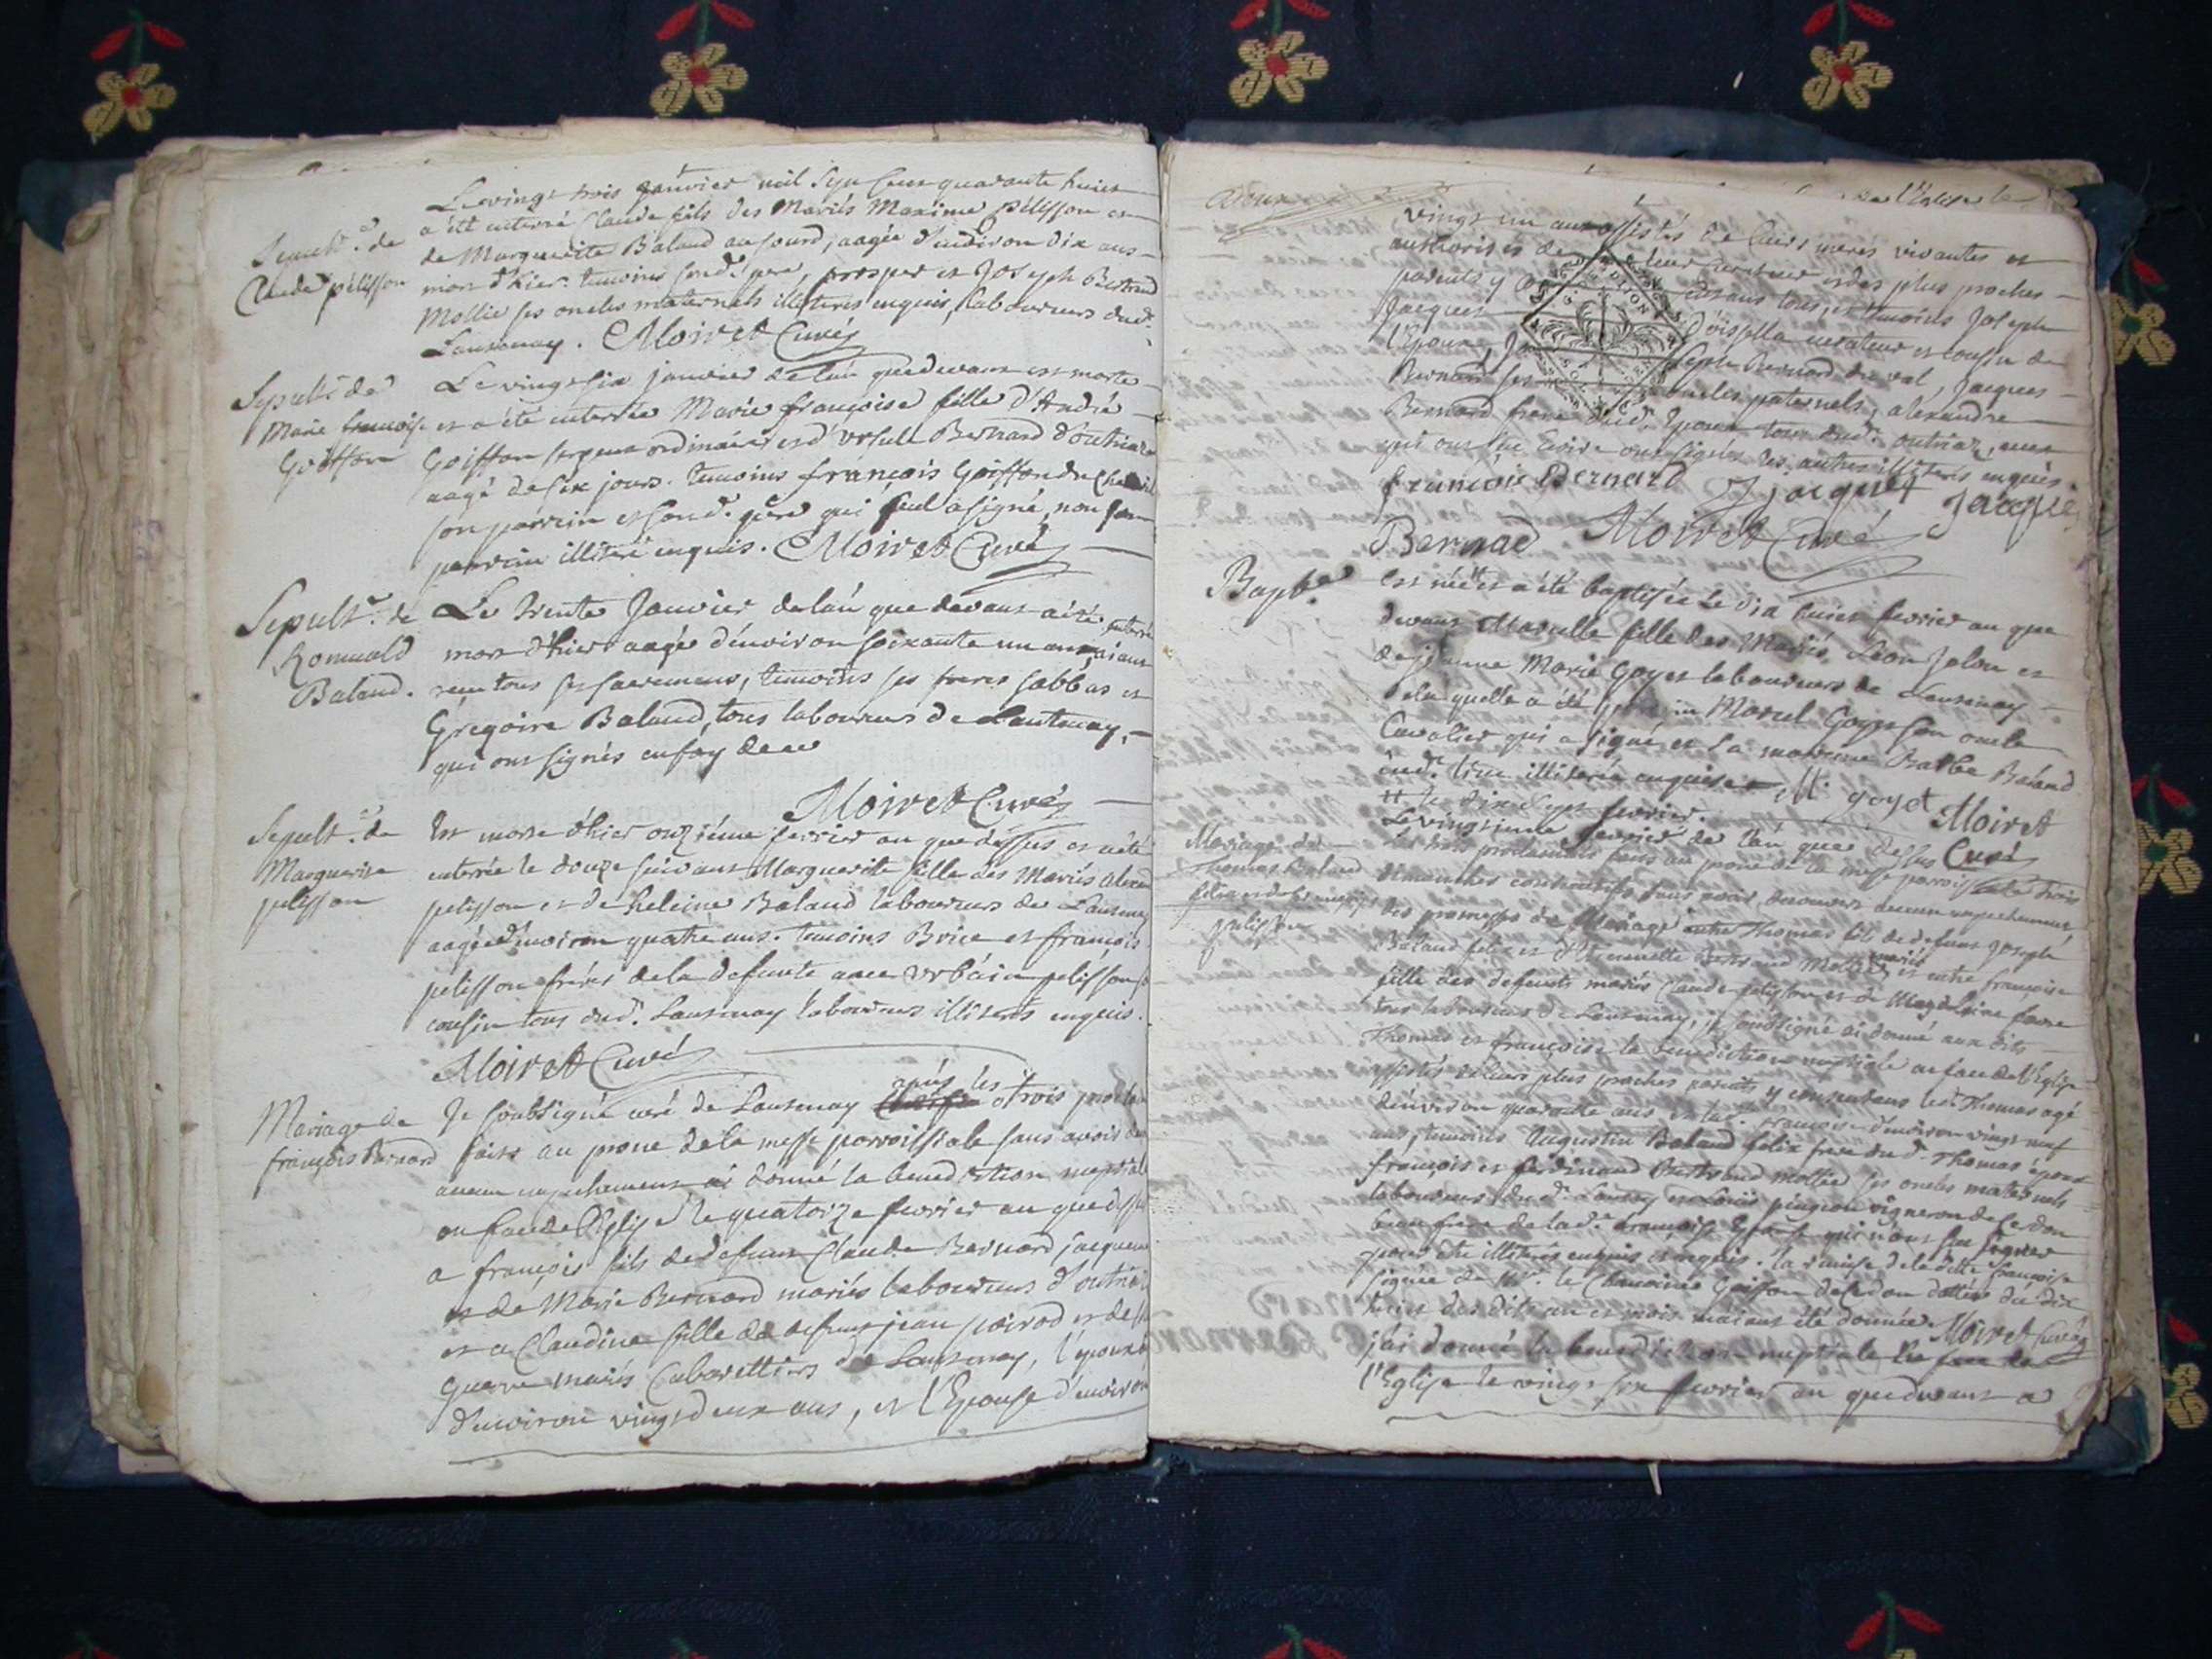 Le vingt trois janvier mil sept cent quarante huict
Sepult.re de
Claude pélisson
a été enterré Claude fils des Mariés Maxime Pélisson et
de Marguerite Baland au sourd, aagée d'environ dix ans
mort d'hier. temoins sond. pere, prosper et Joseph Bertrand
Mollie ses oncles maternels illiteres enquis, laboureurs dud.
Lantenay. Moiret Curé
Sepult.re de
Marie francoise
Goiffon
Le vingt six janvier de l'an que devant est morte
et a été enterrée Marie françoise fille d'André
Goiffon sergent ordinaire et d'Ursule Bernard d'outriaz
aagé de six jours. temoins françois Goiffon du
son parrein et sond. père qui seul a signé, non son
parrein illiteré enquis. Moiret Curé
Sepult.re de
Romuald
Baland.
Le trente Janvier de l'an que devant a été enterré
mort d'hier aagé d'environ soixante un ans aiant
receu tous ses sacremens, temoins ses freres sabbas et
Grégoire Baland, tous laboureurs de Lantenay,
qui ont signés en foy de ce
Moiret Curé
Sepult.re de
Marguerite
pelisson
Est morte d'hier onzième fevrier an que dessus et a été
enterrée le douze suivant Marguerite fille des Mariés
pelisson et de heleine Baland laboureurs de Lantenay
aagée d'environ quatre ans. temoins Brice et françois
pelisson frères de la defunte avec Urbain pelisson
cousin tous dud. Lantenay laboureurs illiterés enquis.
Moiret Curé
Mariage de
françois Bernard
Je soubsigné curé de Lantenay après les trois
faits au prone de la messe parroissiale sans avoir
aucun empechement ai donné la benediction nuptiale
en face de l'Eglise le quatorze fevrier an que dessus
a françois fils de defunt Claude Bernard
et de Marie Bernard mariés laboureurs d'outriaz
et a Claudine fille de defunt jean poirod et de
mariés Cabarettiers de Lantenay, l'epoux
d'environ vingt deux ans, et l'Epouse d'environ
vingt un ans assistés de leurs meres vivantes et
authorisés de leur curateur et des plus proches
parents y tous, et temoins Joseph
Jacquet curateur et cousin de
l'Epouse, Joseph Bernard du val, Jacques
Bernard ses oncles paternels, alexandre
Bernard frere dud. Epoux tous dud. outriaz, ceux
qui ont sceu ecrire ont signés les autres illiterés enquis.
francois Bernard J jacquet Jacque
Bernad Moiret Curé
Bapt.e
Est née et a été baptisée le dix huict fevrier an que
devant Marcelle fille des Mariés Leon Jolon et
de jeanne Marie Goyet laboureurs de Lantenay
de laquelle a été parrein Marcel Goyet son oncle
Cavalier qui a signé et la marreine Barbe Baland
dud. lieu illiterée enquise M. goyet Moiret
le dix sept fevrier. Curé
Mariage de
Thomas Baland
felix et de francoise
pelisson
Le vingtieme fevrier de l'an que dessus
les trois proclamats faits au prone de la messe parroissiale trois
dimanches consecutifs sans avoir decouvert aucun empechement
des promesses de Mariage entre Thomas fils de defunt Joseph
Baland felix et d'Antoinette Bertrand Mollie mariés et entre françoise
fille des defunts mariés Claude pelisson et de Magdelaine favre
tous laboureurs de Lantenay, je soubsigné ai donné aux dits
Thomas et françoise la benediction nuptiale en face de l'Eglise
assistés de leurs plus proches parents y consentans led. Thomas agé
d'environ quarante ans et lad. françoise d'environ vingt neuf
ans, temoins Augustin Baland felix frere du d. Thomas époux
françois et ferdinand Bertrand mollie ses oncles maternels
laboureurs du d. Lantenay et Louis pingeon vigneron de Cerdon
beau frere de la d. françoise Epouse qui n'ont sceu signer
pour être illiterés enquis et requis. la remise de la dite françoise
signée de M.r le Chanoine Goiffon de Cerdon dattée du dix
huict des dits an et mois m'aiant été donnée. Moiret Curé
j'ai donné la benediction nuptiale en face de
l'Eglise le vingt six fevrier an que devant a